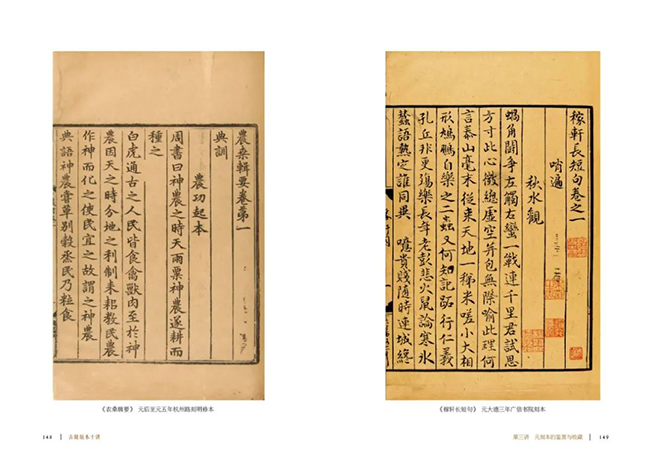 農桑輯要卷第一
典訓
農功起本
周書曰神農之時天雨粟神農遂耕而
種之
白虎通古之人民皆食禽獸肉至於神
農因天之時分地之利制耒耜教民農
作神而化之使民宜之故謂之神農
典語神農嘗草別穀烝民乃粒食
《农桑辑要》 元后至元五年杭州路刻明修本
148 | 古籍版本十讲
稼軒長短句卷之一
哨遍
秋水觀
蝸角鬪爭左觸右蠻一戰連千里君試思
方寸此心微緫虛空并包無際喻此理何
言泰山毫末從来天地一稊米嗟小大相
形鳩鵬自樂之二蟲又何知記跖行仁義
孔丘非更殤樂長年老彭悲火鼠論寒氷
蠶語熱定誰同異 噫貴賤随時連城纔
《稼轩长短句》 元大德三年广信书院刻本
第三讲 元刻本的鉴赏与收藏 | 149